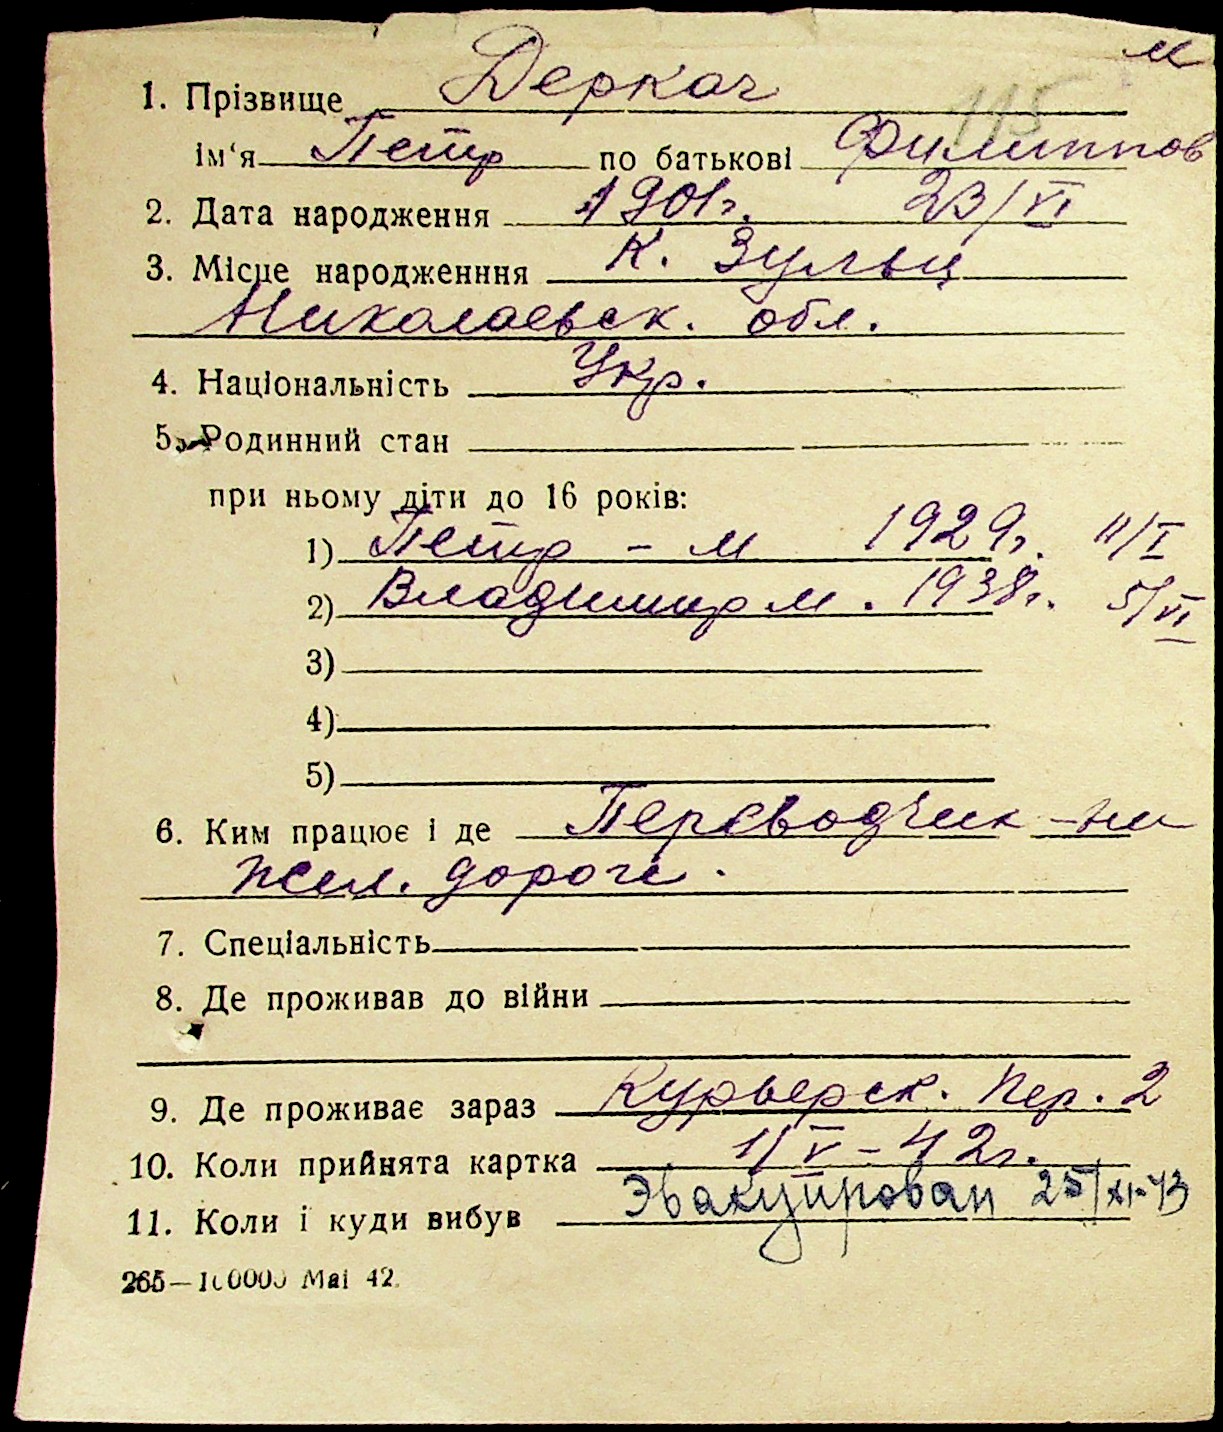 м
1. Прізвище Деркач
115
ім‘я Петр по батькові Филиппов
2. Дата народження 1901г. 23/VI
3. Місце народженння К. Зульц
Николаевск. обл.
4. Національність Укр.
5. Родинний стан
при ньому діти до 16 років:
1) Петр – м 1929г. 11/I
2) Владимир м. 1938г. 5/VI
3)
4)
5)
6. Ким працює і де Переводчик – на
Жел. дороге.
7. Спеціальність
8. Де проживав до війни
9. Де проживає зараз Курьерск. пер. 2
10. Коли прийнята картка 1/V – 42г.
11. Коли і куди вибув Эвакуирован 25/XI-43
265—100000 Маі 42.